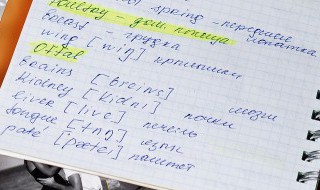 spring - передние
Poultry - дом. птица лопатка
breast - грудка
wing [wiŋ] крылышки
Offal
Brains [breins] мозги
Kidney [kidni] почки
liver [live] печень
tongue [tʌŋ] язык
paté [pætei] паштет